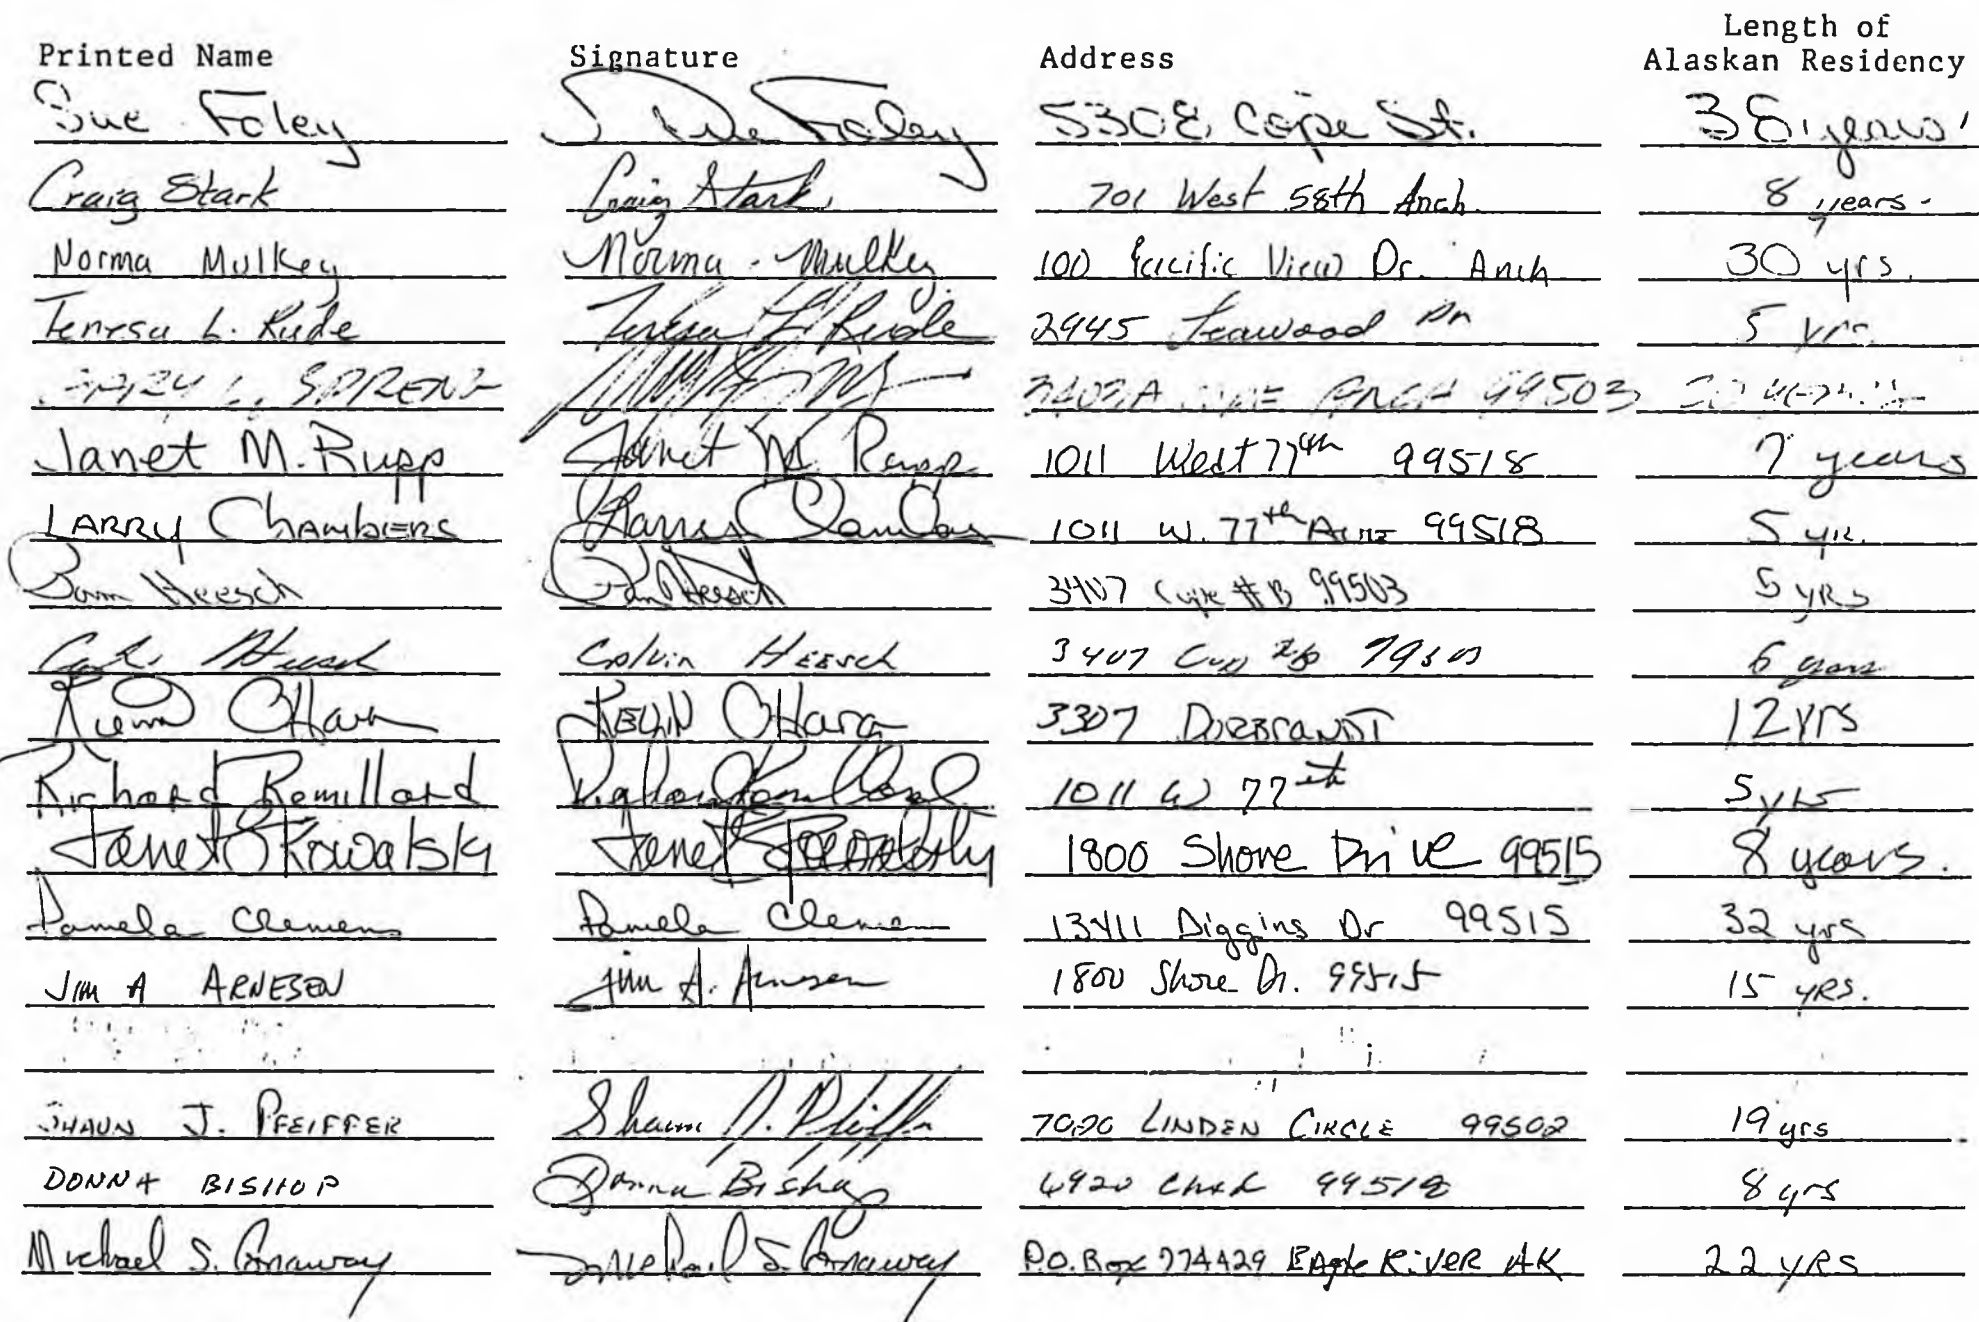 Length of
Printed Name Signature Address Alaskan Residency
Sue Foley Sue Foley 5308 Cope St. 38 years
Craig Stark Craig Stark 701 West 58th Anch 8 years
Norma Mulkey Norma Mulkey 100 Pacific View Dr. Anch 30 yrs.
Teresa L. Rude Teresa L. Rude 2945 Leawood Dr 5 yrs
L. ANCH 99503
Janet M. Rupp Janet M. Rupp 1011 West 77th 99518 7 years
LARRY CHAMBERS 1011 W. 77th 99518 5 yr.
Pam Heesch Pam Heesch 3407 Cope #B 99503 5 yrs
Heesch Colvin Heesch 3407 99503 6 years
O'Hara Kevin O'Hara 3307 12 yrs
Richard Remillard Richard Remillard 1011 W 77th 5 yrs
Janet Kowalski Janet Kowalski 1800 Shore Drive 99515 8 years.
Pamela Clemens Pamela Clemens 13411 Diggins Dr 99515 32 yrs
JIM A ARNESEN Jim A. Arnesen 1800 Shore Dr. 99515 15 YRS.
SHAUN J. PFEIFFER Shaun J. Pfeiffer 7020 LINDEN CIRCLE 99502 19 yrs
DONNA BISHOP Donna Bishop 6920 99518 8 yrs
Michael S. Conaway Michael S. Conaway P.O. Box 774429 EAgle RiVER AK 22 YRS